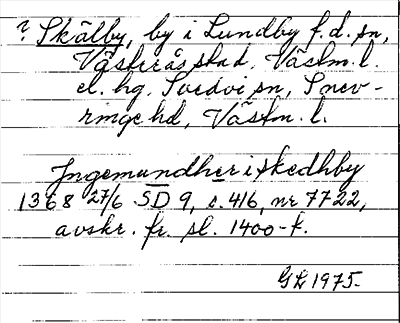 ? Skälby, by i Lundby f.d. sn,
Västerås stad, Västm. l.
el. hg, Svedvi sn, Snev-
ringe hd, Västm. l.
Jngemundher i skedhby
1368 27/6 SD 9, s. 416, nr 7722,
avskr. fr. sl. 1400-t.
GL 1975.